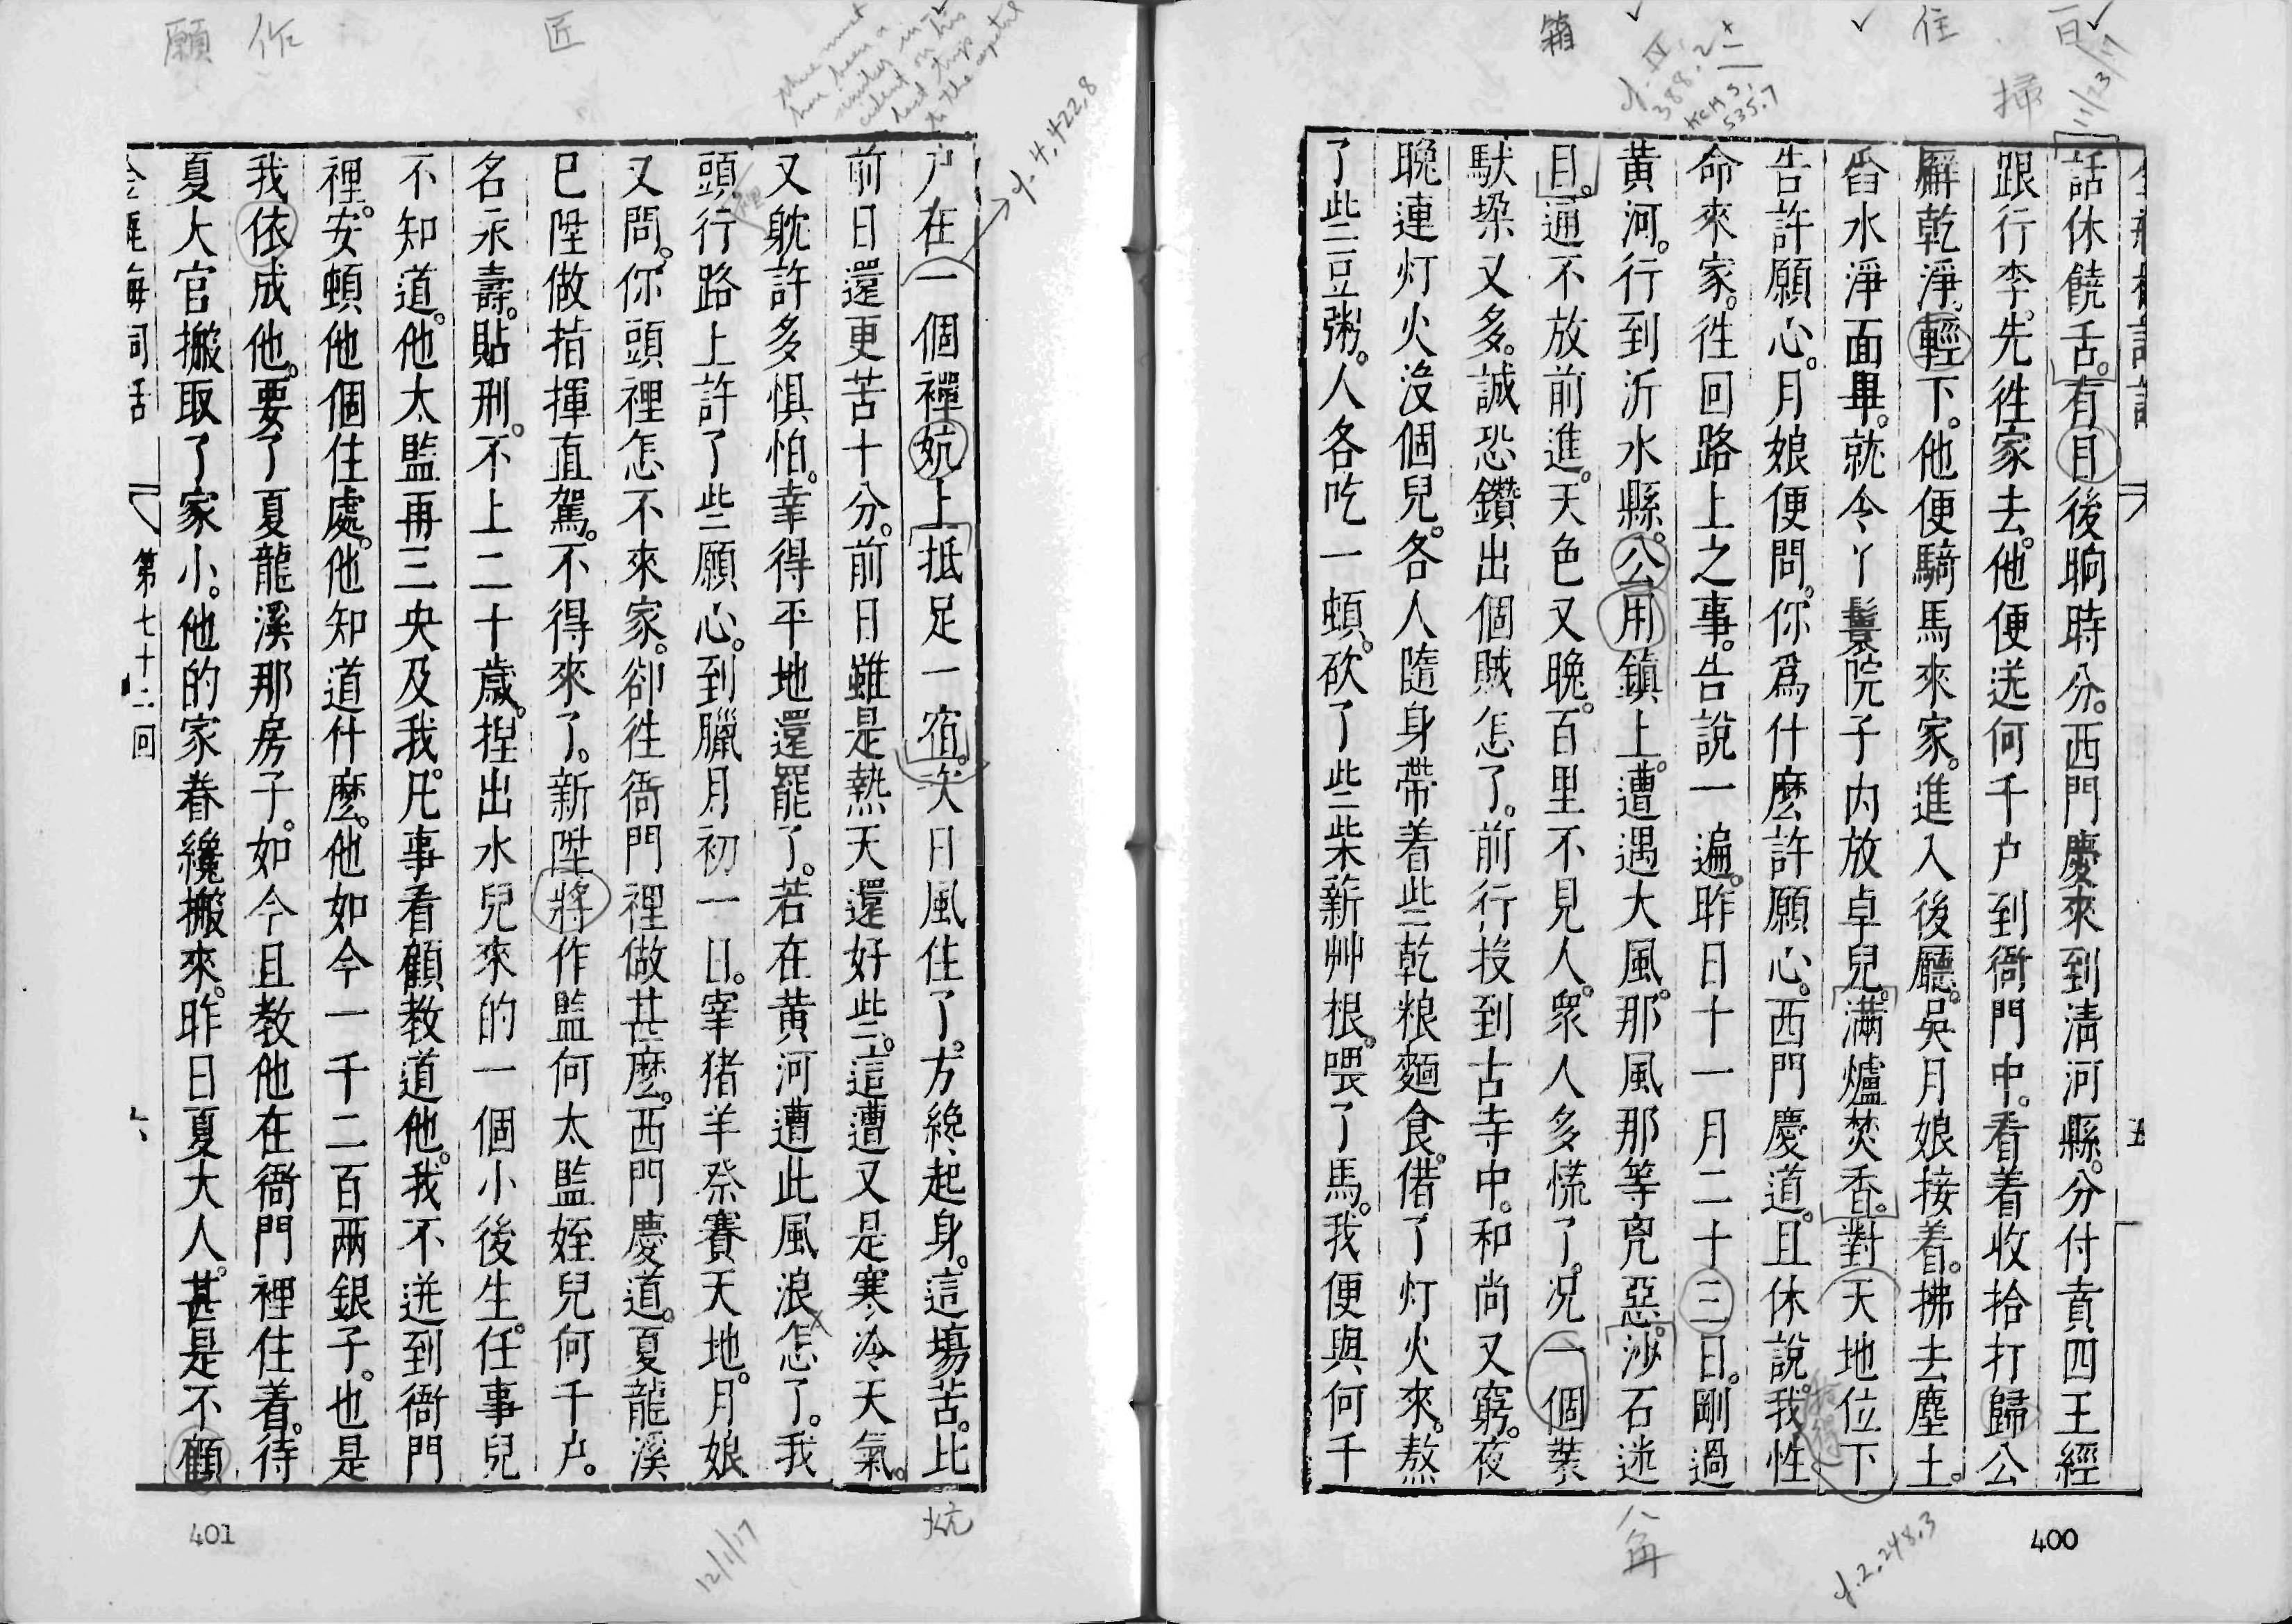 百
住
掃
11/23/17
箱
cf. IV, 388.2
KCM 3, 535.7
話休饒舌。有目後晌時分。西門慶來到清河縣。分付賁四王經
跟行李。先徃家去。他便送何千户到衙門中。看着收拾打歸公
廨乾淨。輕下。他便騎馬來家。進入後廳。吳月娘接着。拂去塵土。
舀水淨面畢。就令丫鬟院子内放卓兒。滿爐焚香。對天地位下
告許願心。月娘便問。你爲什麽許願心。西門慶道。且休說。我性
命來家。徃回路上之事。告說一遍。昨日十一月二十三日。剛過
黄河。行到沂水縣。公用鎮上。遭遇大風。那風那等兇惡。沙石迷
目。通不放前進。天色又晚。百里不見人。衆人多慌了。况一個裝
馱垜又多。誠恐鑽出個賊怎了。前行投到古寺中。和尚又窮。夜
晚連灯火没個兒。各人隨身帶着些乾粮麵食。借了灯火來。熬
了些豆粥。人各吃一頓。砍了些柴薪艸根。喂了馬。我便與何千
cf. 2.248.3
400
匠
作
願
there must have been a similar incident on his last trip to the capital
cf. 4, 422.8
户在一個禪妔上抵足一宿。次日風住了。方纔起身。這塲苦。比
前日還更苦十分。前日雖是熱天還好些。這遭又是寒冷天氣。
又躭許多惧怕。幸得平地還罷了。若在黄河遭此風浪怎了。我
頭行路上許了些願心。到臘月初一日。宰猪羊祭賽天地。月娘
又問。你頭裡怎不來家。卻徃衙門裡做甚麽。西門慶道。夏龍溪
已陞做指揮直駕。不得來了。新陞將作監何太監姪兒何千户。
名永壽。貼刑。不上二十歲。捏出水兒來的一個小後生。任事兒
不知道。他太監再三央及我。凡事看顧教道他。我不送到衙門
裡。安頓他個住處。他知道什麽。他如今一千二百兩銀子。也是
我依成他。要了夏龍溪那房子。如今且教他在衙門裡住着。待
夏大官搬取了家小。他的家眷纔搬來。昨日夏大人。甚是不顧
金瓶梅詞話
第七十二回
六
炕
12/1/17
401